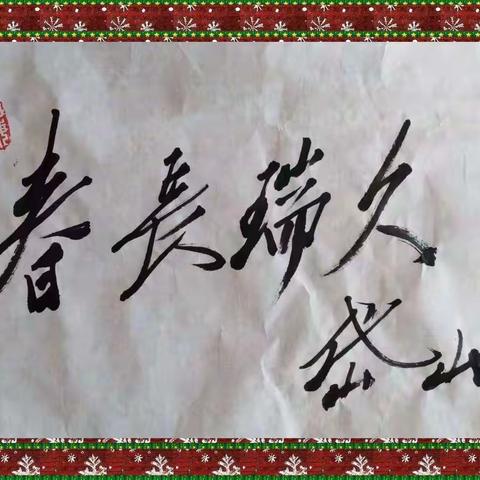 春長瑞久
岱山